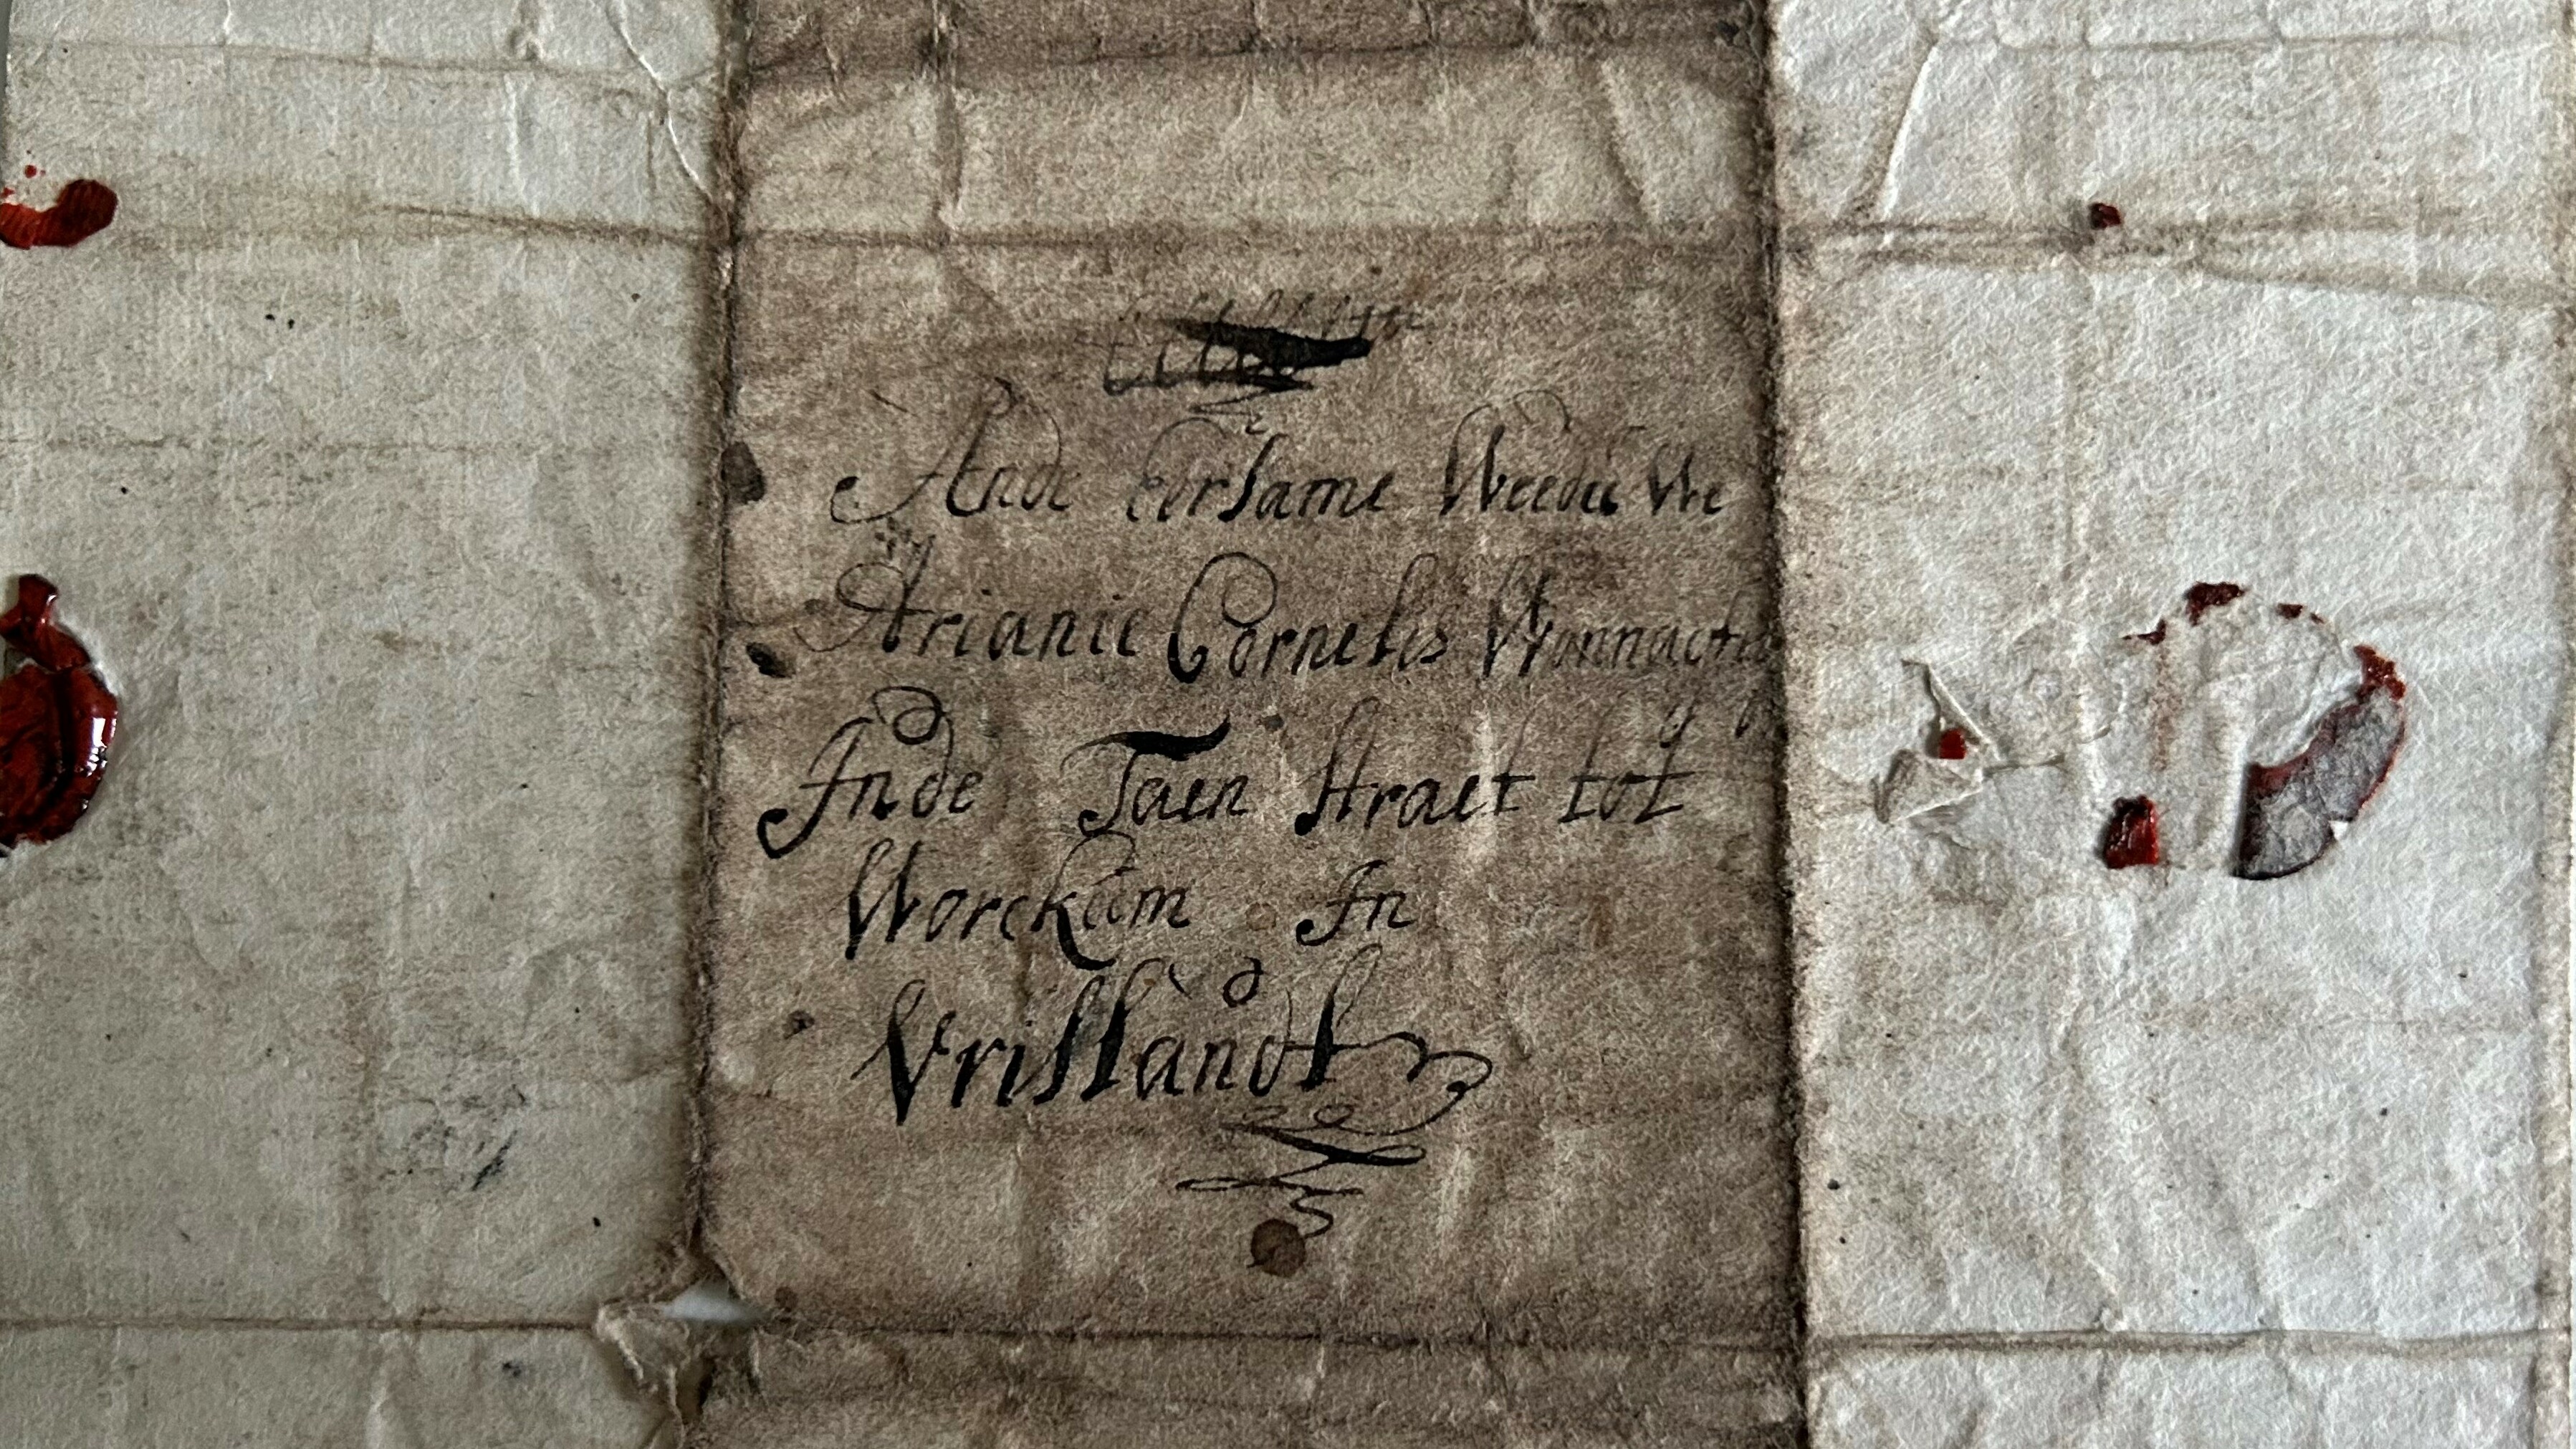 Ande eersame Weedu We
Arianie Cornelis Wonnacti
Inde Taen straet tot
Worckum In
Vrislandt